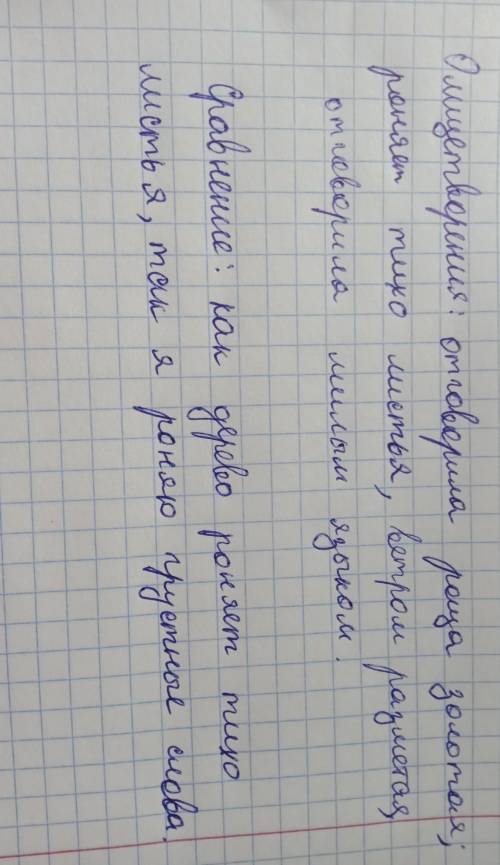 Олицетворения: отговорила роща золотая;
роняет тихо листья, ветром разметая,
отговорила милым языком.
Сравнение: как дерево роняет тихо
листья, так я роняю грустные слова.